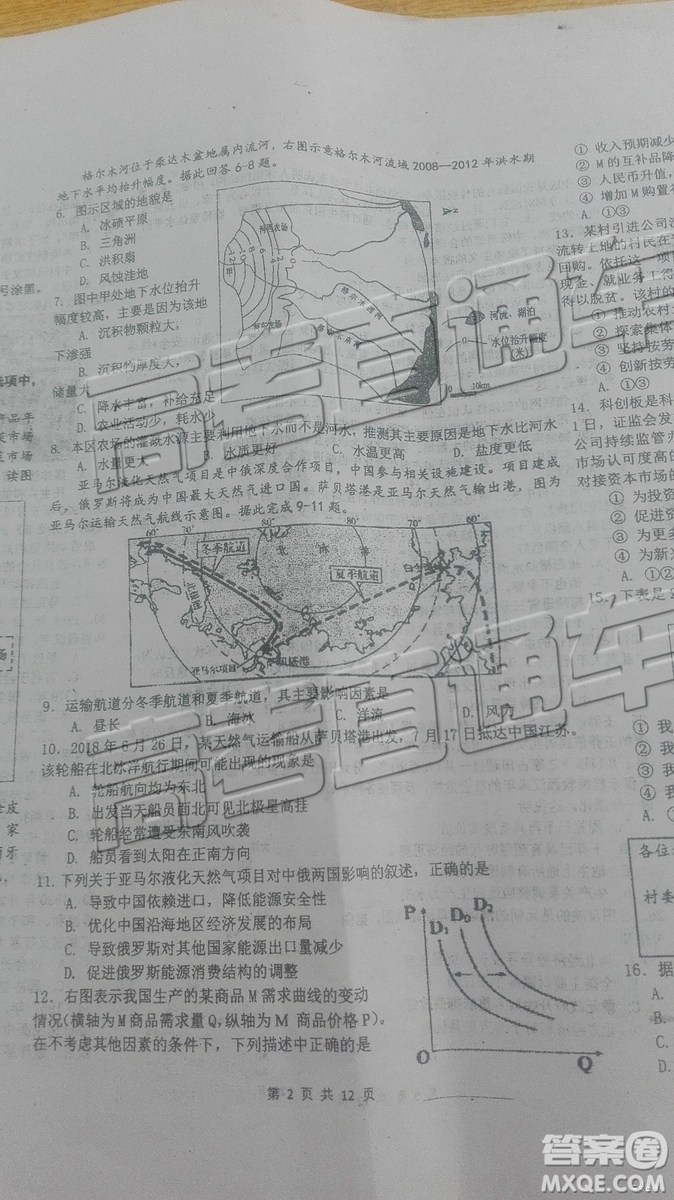 格尔木河位于柴达木盆地属内流河，右图示意格尔木河流域2008—2012年洪水期
地下水平均抬升幅度。据此回答6-8题。
6. 图示区域的地貌是
A. 冰碛平原
B. 三角洲
C. 洪积扇
D. 风蚀洼地
7. 图中甲处地下水位抬升
幅度较高，主要是因为该地
A. 沉积物颗粒大，
下渗强
B. 沉积物厚度大，
储量大
C. 降水丰富，补给充足
D. 农业活动少，耗水少
河西农场
格尔木西河
格尔木东河
甲
河流、湖泊
水位抬升幅度
(米)
0 10km
8. 本区农场的灌溉水源主要利用地下水而不是河水，推测其主要原因是地下水比河水
A. 水量更大 B. 水质更好 C. 水温更高 D. 盐度更低
亚马尔液化天然气项目是中俄深度合作项目，中国参与相关设施建设。项目建成
后，俄罗斯将成为中国最大天然气进口国。萨贝塔港是亚马尔天然气输出港，图为
亚马尔运输天然气航线示意图。据此完成9-11题。
60° 70° 80° 80° 70° 60°
冬季航道
北 冰 洋
夏季航道
亚马尔项目
9. 运输航道分冬季航道和夏季航道，其主要影响因素是
A. 昼长 B. 海冰 C. 洋流 D. 风力
10. 2018年6月26日，某天然气运输船从萨贝塔港出发，7月17日抵达中国江苏。
该轮船在北冰洋航行期间可能出现的现象是
A. 轮船航向均为东北
B. 出发当天船员面北可见北极星高挂
C. 轮船经常遭受东南风吹袭
D. 船员看到太阳在正南方向
11. 下列关于亚马尔液化天然气项目对中俄两国影响的叙述，正确的是
A. 导致中国依赖进口，降低能源安全性
B. 优化中国沿海地区经济发展的布局
C. 导致俄罗斯对其他国家能源出口量减少
D. 促进俄罗斯能源消费结构的调整
12. 右图表示我国生产的某商品M需求曲线的变动
情况(横轴为M商品需求量Q,纵轴为M 商品价格P)。
在不考虑其他因素的条件下，下列描述中正确的是
P
D₁ D₀ D₂
O
Q
第 2 页 共 12 页
号涂黑。
选项中，
市场
读图
① 收入预期减少
② M的互补品降
③ 人民币升值，
④ 增加M购置补
A. ①③
13. 某村引进公司
流转土地的村民在
回购。依托这一项
现金、就业务工
得以脱贫。该村的
① 推动农村
② 探索集体
③ 坚持按劳
④ 创新按劳
A. ①③
14. 科创板是科
1日，证监会发
公司持续监管办
市场认可度高的
对接资本市场的
① 为投资
② 促进资
③ 为更多
④ 为新
A. ①②
15. 下表是
① 我
② 我
③ 我
④ 我
A.
各位
村委
16. 据
A.
B.
C.
D.
高考直通车
高考直通车
答案圈
MXQE.COM